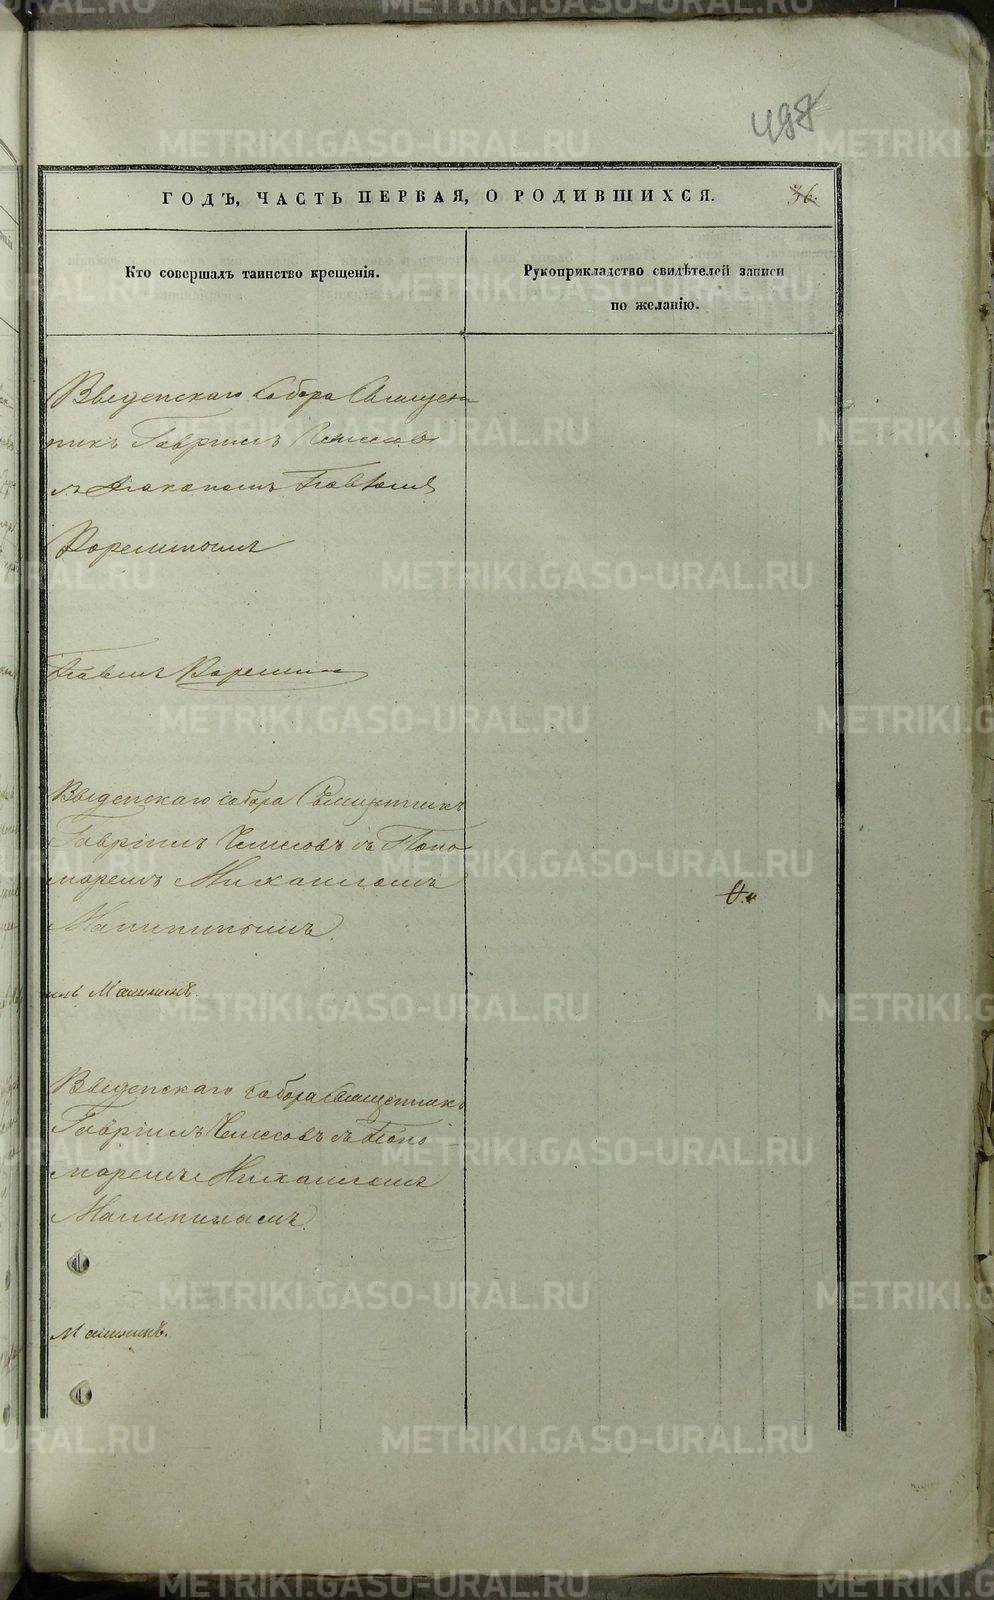 498
ГОДЪ, ЧАСТЬ ПЕРВАЯ, О РОДИВШИХСЯ.
36.
Кто совершалъ таинство крещенія.
Рукоприкладство свидѣтелей записи
по желанію.
Введенскаго Собора Священ
никъ Гавріилъ
съ Діакономъ Павломъ
Павелъ
Введенскаго собора Священникъ
Гавріилъ съ Поно
маремъ Михаиломъ
Малининымъ.
илъ Малининъ.
Введенскаго Собора Священникъ
Гавріилъ съ Поно
маремъ Михаиломъ
Малининымъ.
Малининъ.
METRIKI.GASO-URAL.RU